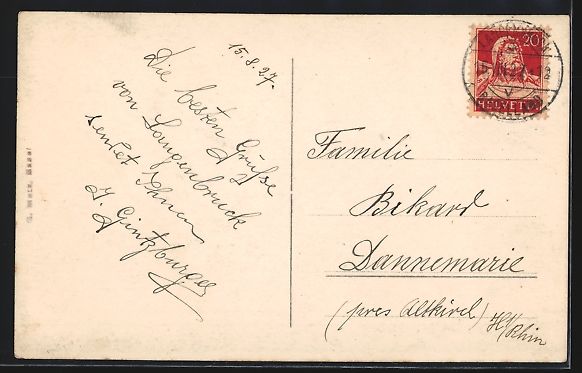 15.8.27.
Die besten Grüsse
von Langenbruck
sendet Ihnen
J. Gintzburger
Familie
Bikard
Dannemarie
(près Altkirch) H/Rhin
20
HELVETIA